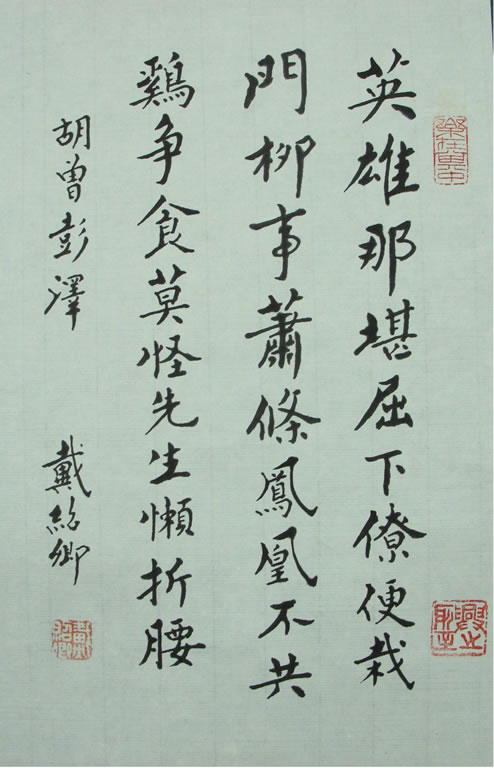 英雄那堪屈下僚便栽
門柳事蕭條鳳凰不共
鷄争食莫怪先生懶折腰
胡曾彭澤
戴紹卿